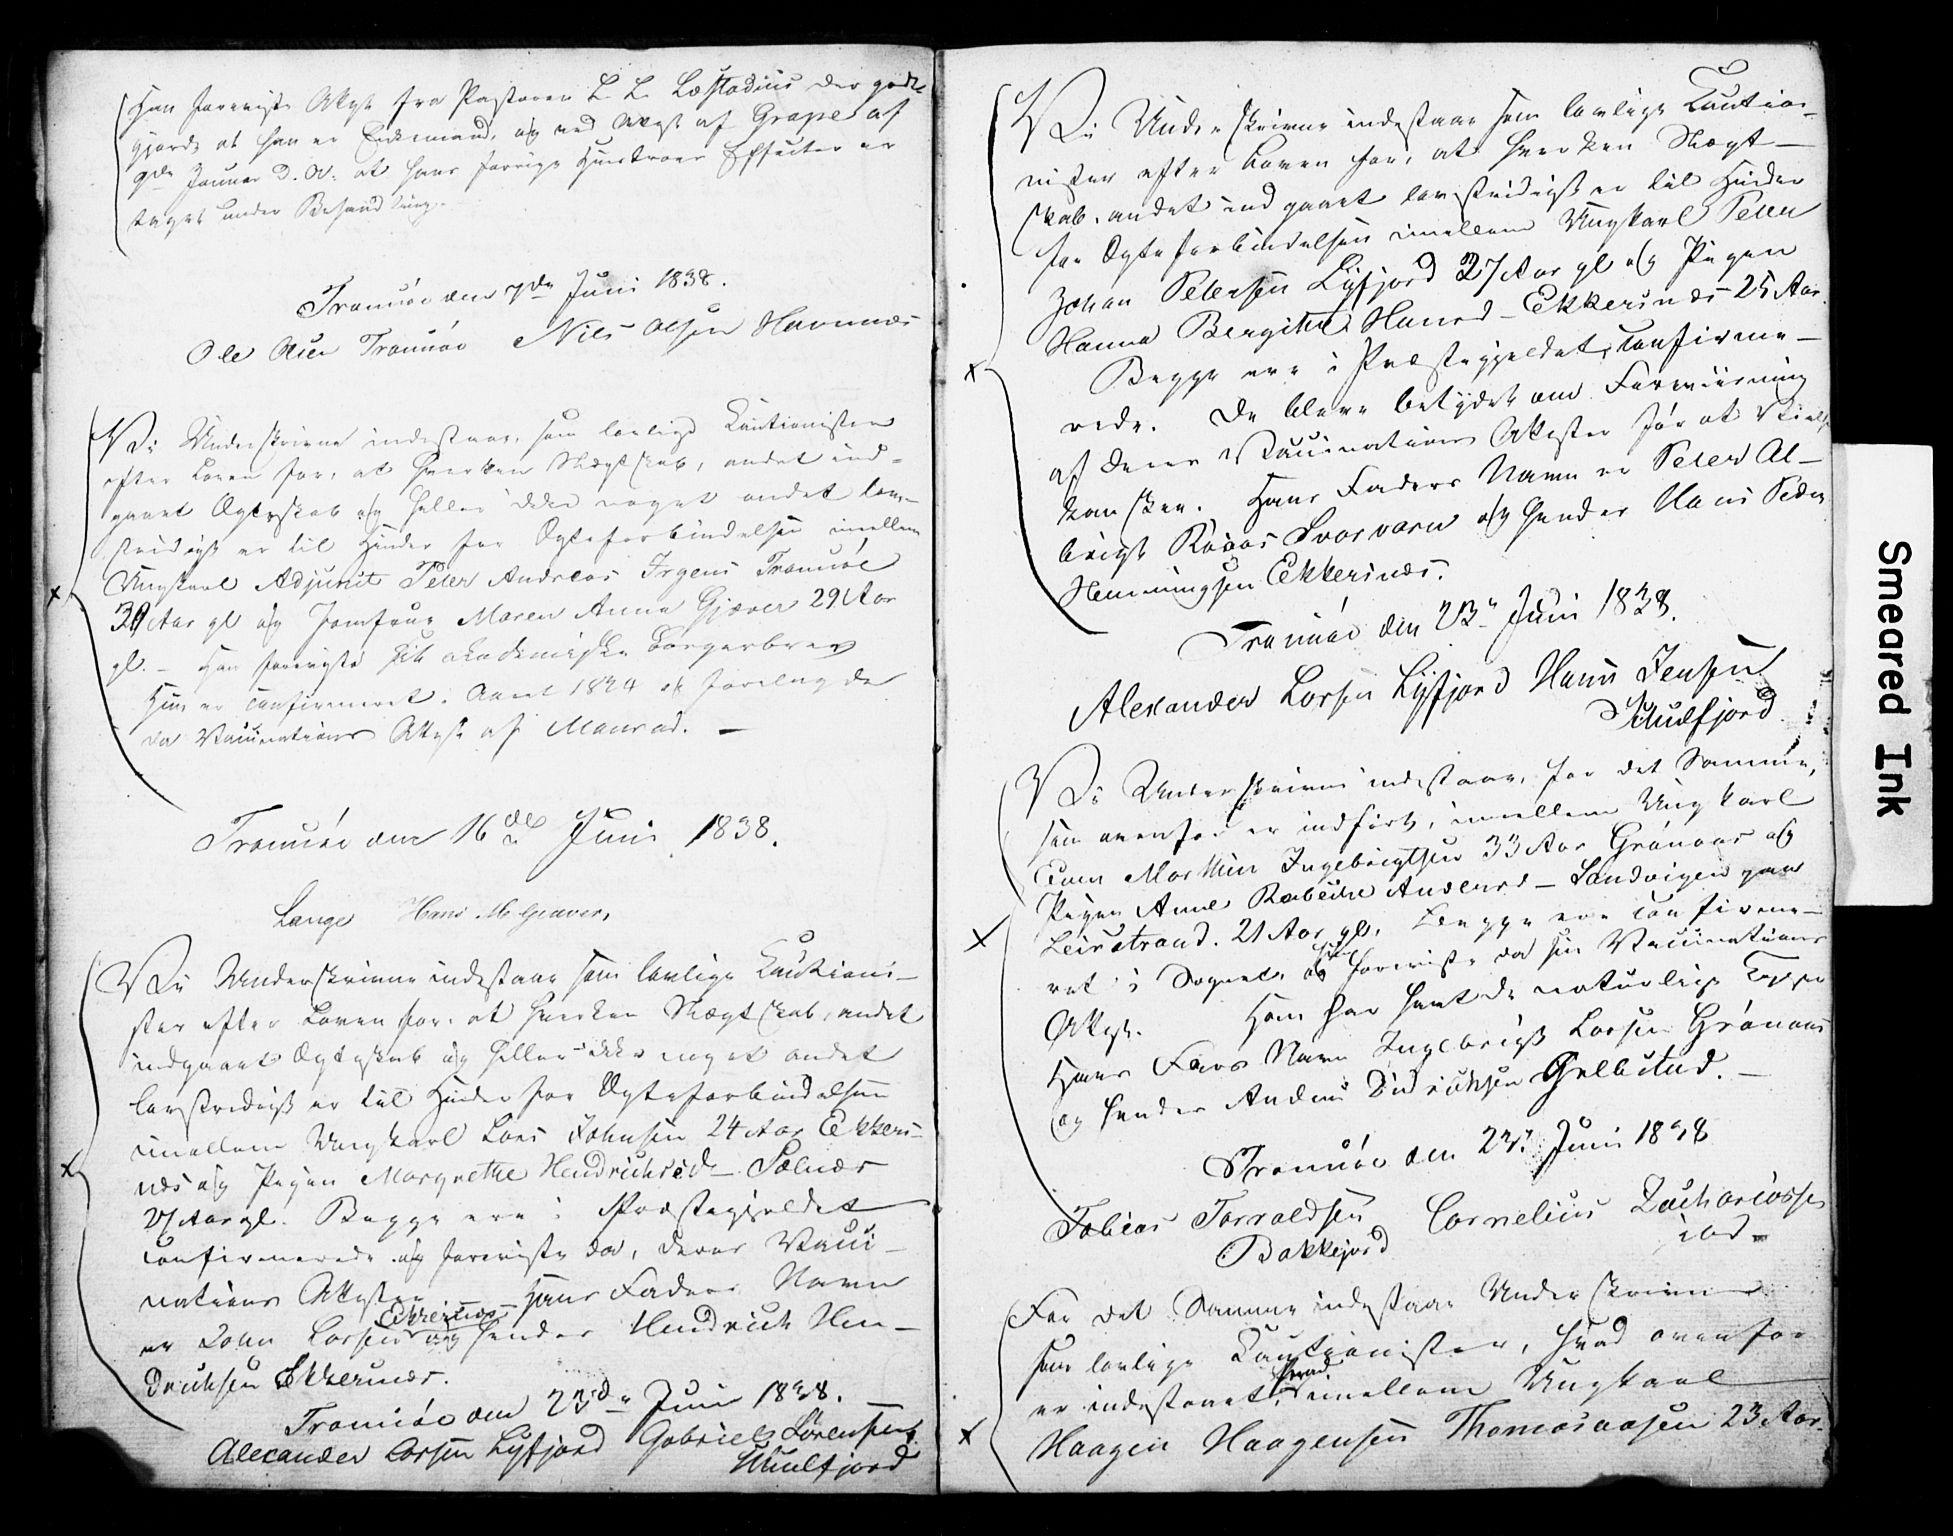 Han foreviste Attest fra Pastoren L. L. Læstadius der godt-
gjorde at han er Enkemand, og ved Attest af Grape af
9de Januar d. A. at hans forrige Hustroes Effecter er
taget under Behandling.
Tromsöe den 7de Juni 1838.
Ole Olsen Tromsöe Nils Olsen Havnnæs
Vi Underskrevne indestaae, som lovlige Cautionister
efter Loven for, at hverken Slægtskab, andet ind-
gaaet Ægteskab og heller ikke noget andet lov-
stridigt er til Hinder for Ægteforbindelsen imellem
Ungkarl Adjunct Peter Andreas Irgens Tromsöe
Aar gl og Jomfrue Maren Anna Gjæver 29 Aar
gl. - Han foreviste sit academiske Borgerbrev
Hun er confirmeret Aaret 1824 og forelagde
da Vaccinations Attest af Monrad. -
Tromsöe den 16de Juni 1838.
Lange Hans M. Gjæver,
Vi Underskrevne indestaae som lovlige Cautioni-
ster efter Loven for, at hverken Slægtskab, andet
indgaaet Ægteskab og heller ikke noget andet
lovstridigt er til Hinder for Ægteforbindelsen
imellem Ungkarl Lars Johnsen 24 Aar Ekkers-
næs og Pigen Margrethe Hendrichsd - Sælnæs
Aar gl. Begge ere i Præstegjeldet
confirmerede og foreviste da, deres Vacci-
nations Attester - Hans Faders Navn
er John Larsen Ekkersnæs og hendes Hendrich Hen-
drichsen Ekkersnæs.
Tromsöe den 23de Juni 1838.
Alexander Larsen Lyfjord Gabriel Sörensen
Skulfjord
Vi Underskrevne indestaae som lovlige Cautio-
nister efter Loven for, at hverken Slægt-
skab, andet indgaaet lovstridigt er til Hinder
for Ægteforbindelsen imellem Ungkarl Peter
Johan Petersen Lyfjord 27 Aar gl og Pigen
Hanna Bergithe Hansd - Ekkersnæs 25 Aar.
Begge ere i Præstegjeldet confirme-
rede. De bleve betydet om Foreviisning
af deres Vaccinations Attester før at Vielse
kan skee. Hans Faders Navn er Peter Al-
brigt Svarvarn og hendes Hans Peder
Henningsen Ekkersnæs.
Tromsöe den 23de Juni 1838.
Alexander Larsen Lyfjord Hans Jensen
Skulfjord
Vi Underskrevne indestaae, for det Samme,
som ovenfor er indført, imellem Ungkarl
Marthin Ingebrigtsen 33 Aar Grönaas og
Pigen Anne Andersd - Sandvigen paa
Leirstrand. 21 Aar gl. Begge ere confirme-
ret i Sognet, og foreviste da sin Vaccinations
Attest. Han har havt de naturlige Kopper
Hans Fars Navn Ingebrigt Larsen Grönaas
og hendes Anders Didrichsen Gulbstad. -
Tromsöe den 23. Juni 1838
Tobias Torvaldsen Cornelius Zachariassen
Bakkejord
For det Samme indestaae Underskrevne
som lovlige Cautionister, hvad ovenfor
er indestaaet, imellem Ungkarl
Haagen Haagensen Thomasaasen 23 Aar
Smeared Ink